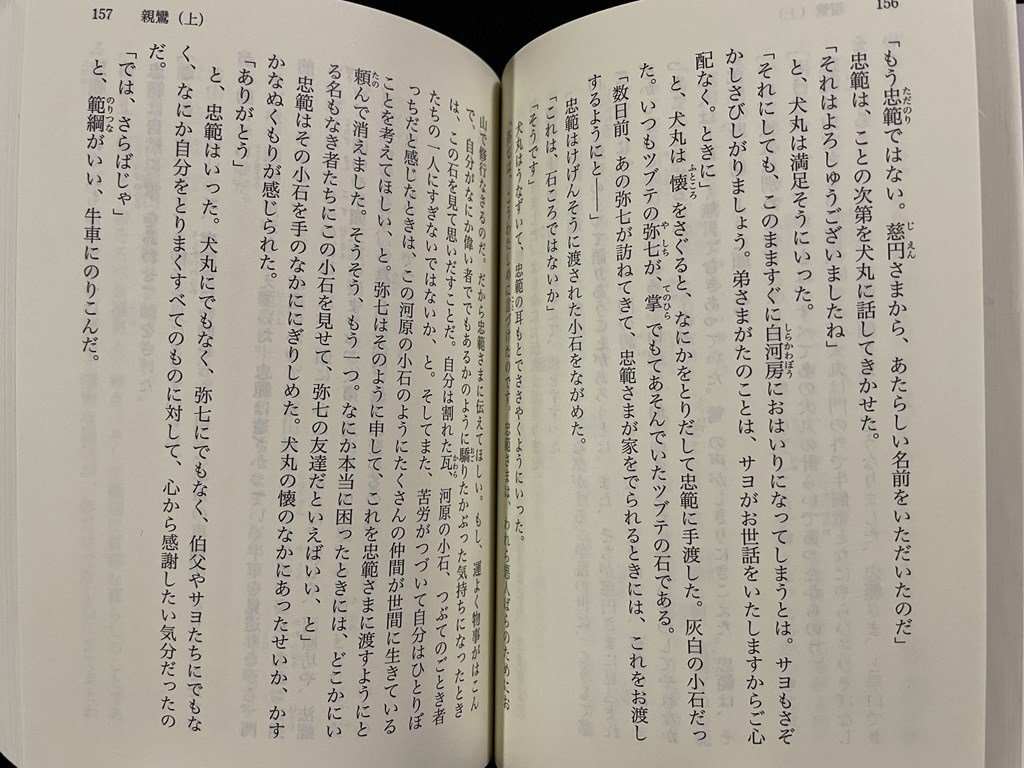 156
「もう忠範ではない。慈円さまから、あたらしい名前をいただいたのだ」
忠範は、ことの次第を犬丸に話してきかせた。
「それはよろしゅうございましたね」
と、犬丸は満足そうにいった。
「それにしても、このまますぐに白河房におはいりになってしまうとは。サヨもさぞ
かしさびしがりましょう。弟さまがたのことは、サヨがお世話をいたしますからご心
配なく。ときに」
と、犬丸は懐をさぐると、なにかをとりだして忠範に手渡した。灰白の小石だっ
た。いつもツブテの弥七が、掌でもてあそんでいたツブテの石である。
「数日前、あの弥七が訪ねてきて、忠範さまが家をでられるときには、これをお渡し
するようにと――」
忠範はけげんそうに渡された小石をながめた。
「これは、石ころではないか」
「そうです」
犬丸はうなずいて、忠範の耳もとでささやくようにいった。
忠範さまは、われら悪人ばらのためにお
157 親鸞（上）
山で修行なさるのだ。だから忠範さまに伝えてほしい。もし、運よく物事がはこん
で、自分がなにか偉い者ででもあるかのように驕りたかぶった気持ちになったとき
は、この石を見て思いだすことだ。自分は割れた瓦、河原の小石、つぶてのごとき者
たちの一人にすぎないではないか、と。そしてまた、苦労がつづいて自分はひとりぼ
っちだと感じたときは、この河原の小石のようにたくさんの仲間が世間に生きている
ことを考えてほしい、と。弥七はそのように申して、これを忠範さまに渡すようにと
頼んで消えました。そうそう、もう一つ。なにか本当に困ったときには、どこかにい
る名もなき者たちにこの小石を見せて、弥七の友達だといえばいい、と」
忠範はその小石を手のなかににぎりしめた。犬丸の懐のなかにあったせいか、かす
かなぬくもりが感じられた。
「ありがとう」
と、忠範はいった。犬丸にでもなく、弥七にでもなく、伯父やサヨたちにでもな
く、なにか自分をとりまくすべてのものに対して、心から感謝したい気分だったの
だ。
「では、さらばじゃ」
と、範綱がいい、牛車にのりこんだ。